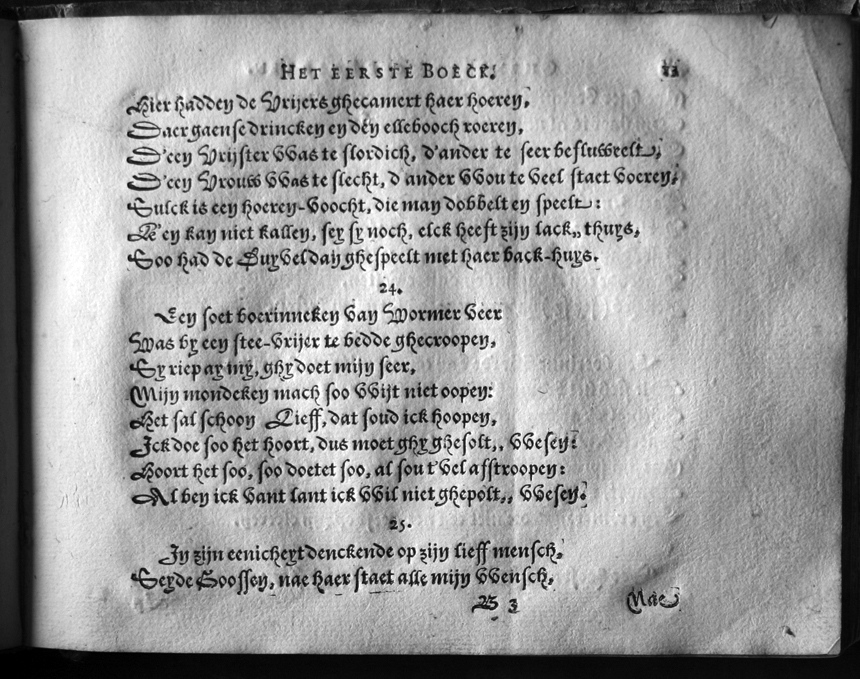 HET EERSTE BOECK. 11
Hier hadden de Vrijers ghecamert haer hoeren,
Daer gaense drincken en den ellebooch roeren,
D'een Vrijster VVas te slordich, d'ander te seer besluweelt,
D'een Vrouw VVas te slecht, d'ander VVou te veel staet voeren,
Sulck is een hoeren-voocht, die man dobbelt en speelt:
Ik'en kan niet kallen, sey sy noch, elck heeft zijn lack,, thuys,
Soo had de Duyvel daer ghespeelt met haer back-huys.
24.
Een soet boerinneken van Wormer veer
Was by een stee-vrijer te bedde ghecroopen,
Sy riep ay my, ghy doet mijn seer,
Mijn mondeken mach soo VVijt niet oopen:
Het sal schoon Lieff, dat soud ick hoopen,
Ick doe soo het hoort, dus moet ghy ghesolt,, VVesen:
Hoort het soo, soo doetet soo, al sou t'vel afstroopen:
Al ben ick vant lant ick VVil niet ghepolt,, VVesen.
25.
In zijn eenicheyt denckende op zijn lieff mensch,
Seyde Goossen, nae haer staet alle mijn VVensch,
B 3 Mae